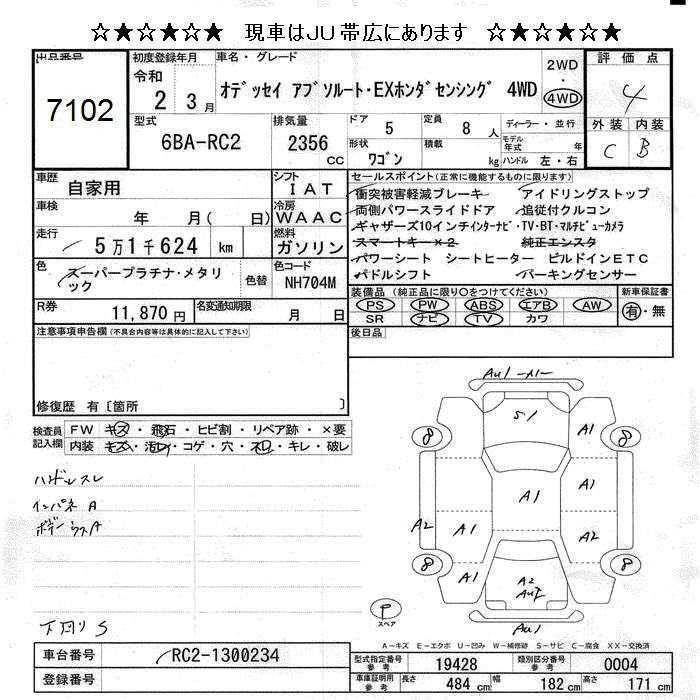 ☆★☆★☆★ 現車はJU帯広にあります ☆★☆★☆★
出品番号 初度登録年月 車名・グレード 2WD・4WD 評価点
7102 令和 2 3月 オデッセイ アブソルート・EXホンダセンシング 4WD 4
型式 排気量 ドア 5 定員 8 人 ディーラー・並行 外装 内装
6BA-RC2 2356 CC 形状 ワゴン 積載 kg モデル年式 年 ハンドル 左・右 C B
車歴 自家用 シフト IAT セールスポイント(正常に機能するものに限ります)
車検 年 月( 日) 冷房 WAAC 衝突被害軽減ブレーキ アイドリングストップ
両側パワースライドドア 追従付クルコン
走行 5万1千624 km 燃料 ガソリン ギャザーズ10インチインターナビ・TV・BT・マルチビューカメラ
スマートキー×2 純正エンスタ
色 スーパープラチナ・メタリック 色替 色コード NH704M パワーシート シートヒーター ビルドインETC
パドルシフト パーキングセンサー
R券 11,870円 名変通知期限 月 日 装備品(純正品に限り○をつけてください) 新車保証書
PS PW ABS エアB AW 有・無
SR ナビ TV カワ
注意事項申告欄(不具合内容等は具体的に記入して下さい) 後日品
修復歴 有〔箇所 〕
検査員記入欄 FW キズ・飛石・ヒビ割・リペア跡・×要
内装 キズ・汚レ・コゲ・穴・スレ・キレ・破レ
ハンドルスレ
インパネ A
ボデーウスA
下回り S
AU1 A1
S1
A1
A1
A1
A2
A1
A2
A1
A2
A1
AU1
P
スペア
A-キズ E-エクボ U-凹み W-補修跡 S-サビ C-腐食 XX-交換済
車台番号 RC2-1300234 型式指定番号 参考 19428 類別区分番号 参考 0004
登録番号 車庫証明用 参考 長さ 484 cm 幅 182 cm 高さ 171 cm